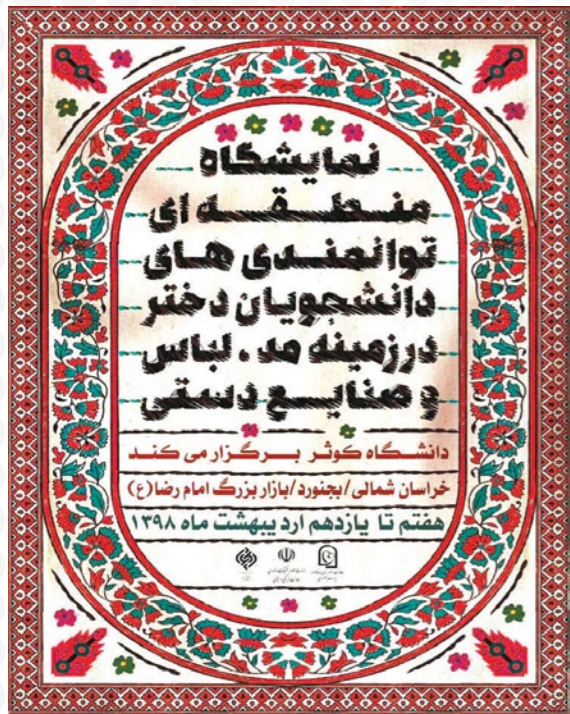 نمایشگاه
منطقه ای
توانمندی های
دانشجویان دختر
درزمینه مد، لباس
و صنایع دستی
دانشگاه کوثر برگزار می کند
خراسان شمالی/بجنورد/بازار بزرگ امام رضا(ع)
هفتم تا یازدهم اردیبهشت ماه ۱۳۹۸